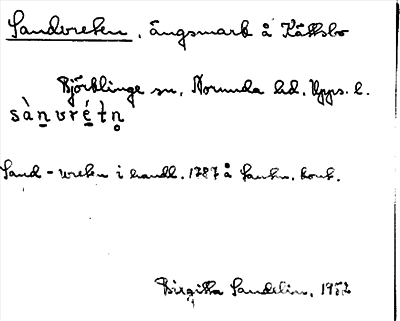 Sandvreten, ängsmark å Kättsbo
Björklinge sn, Norunda hd, Upps. l.
sànvrétn̥
Sand-wreten i handl. 1787 å Lantm. kont.
Birgitta Sandelin, 1952